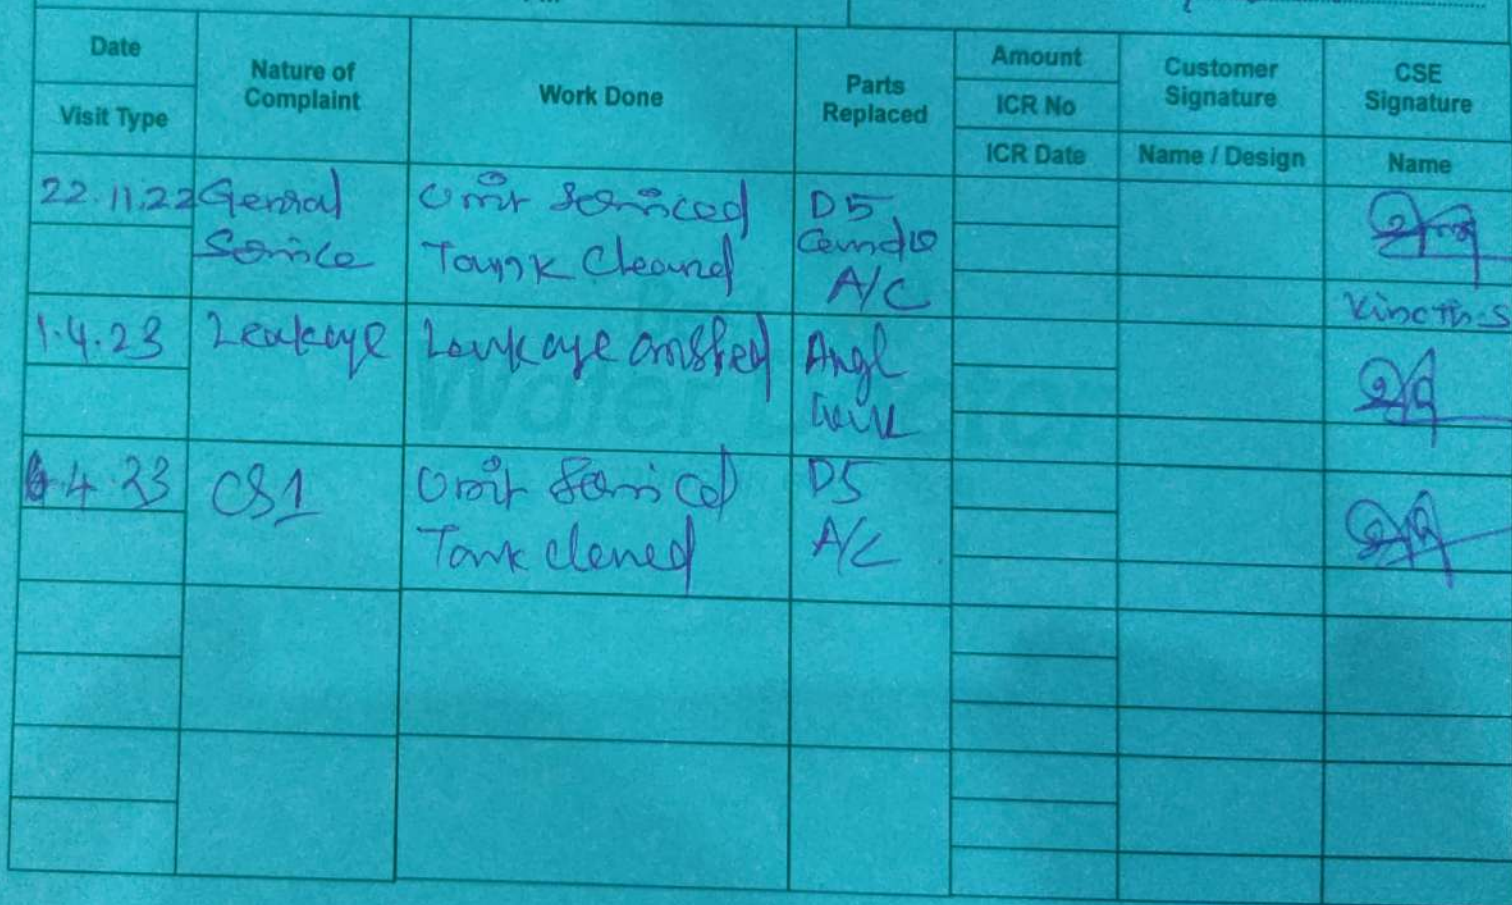 Date
Visit Type
Nature of
Complaint
Work Done
Parts
Replaced
Amount
ICR No
ICR Date
Customer
Signature
Name / Design
CSE
Signature
Name
22.11.22
General
Service
Unit Serviced
Tank Cleaned
D5
Candle
A/C
Vinoth.S
1.4.23
Leakage
Leakage
Angl
4.23
CS1
Unit Serviced
Tank clened
D5
A/C
Water Doctor